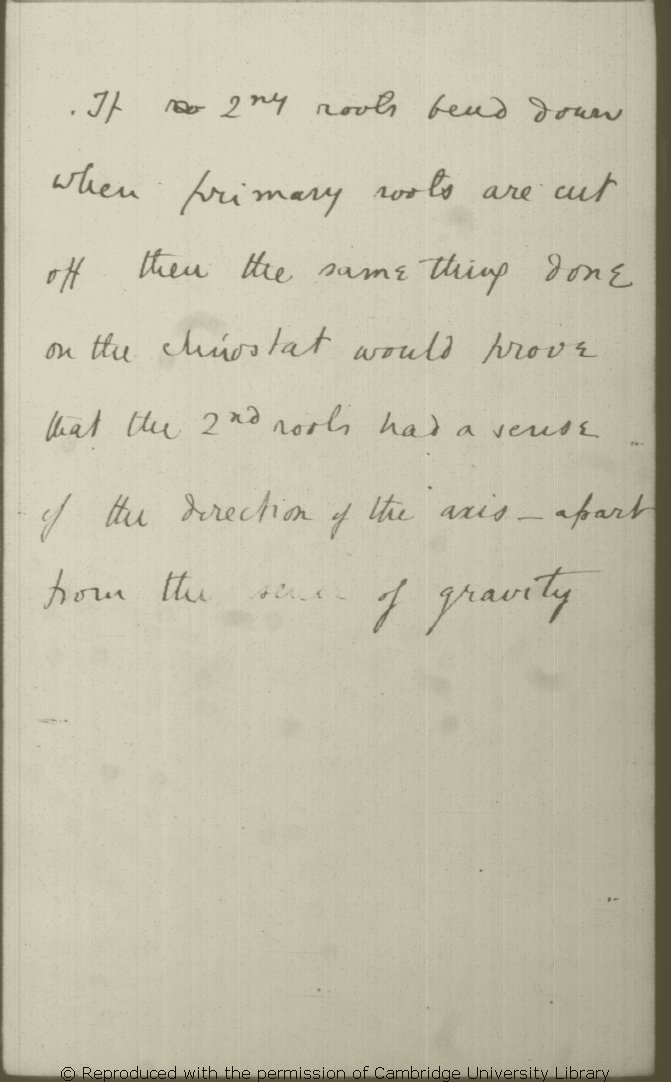 . If ro 2ry roots bend down
when primary roots are cut
off then the same thing done
on the clinostat would prove
that the 2nd roots had a sense
of the direction of the axis — apart
from the sense of gravity
© Reproduced with the permission of Cambridge University Library